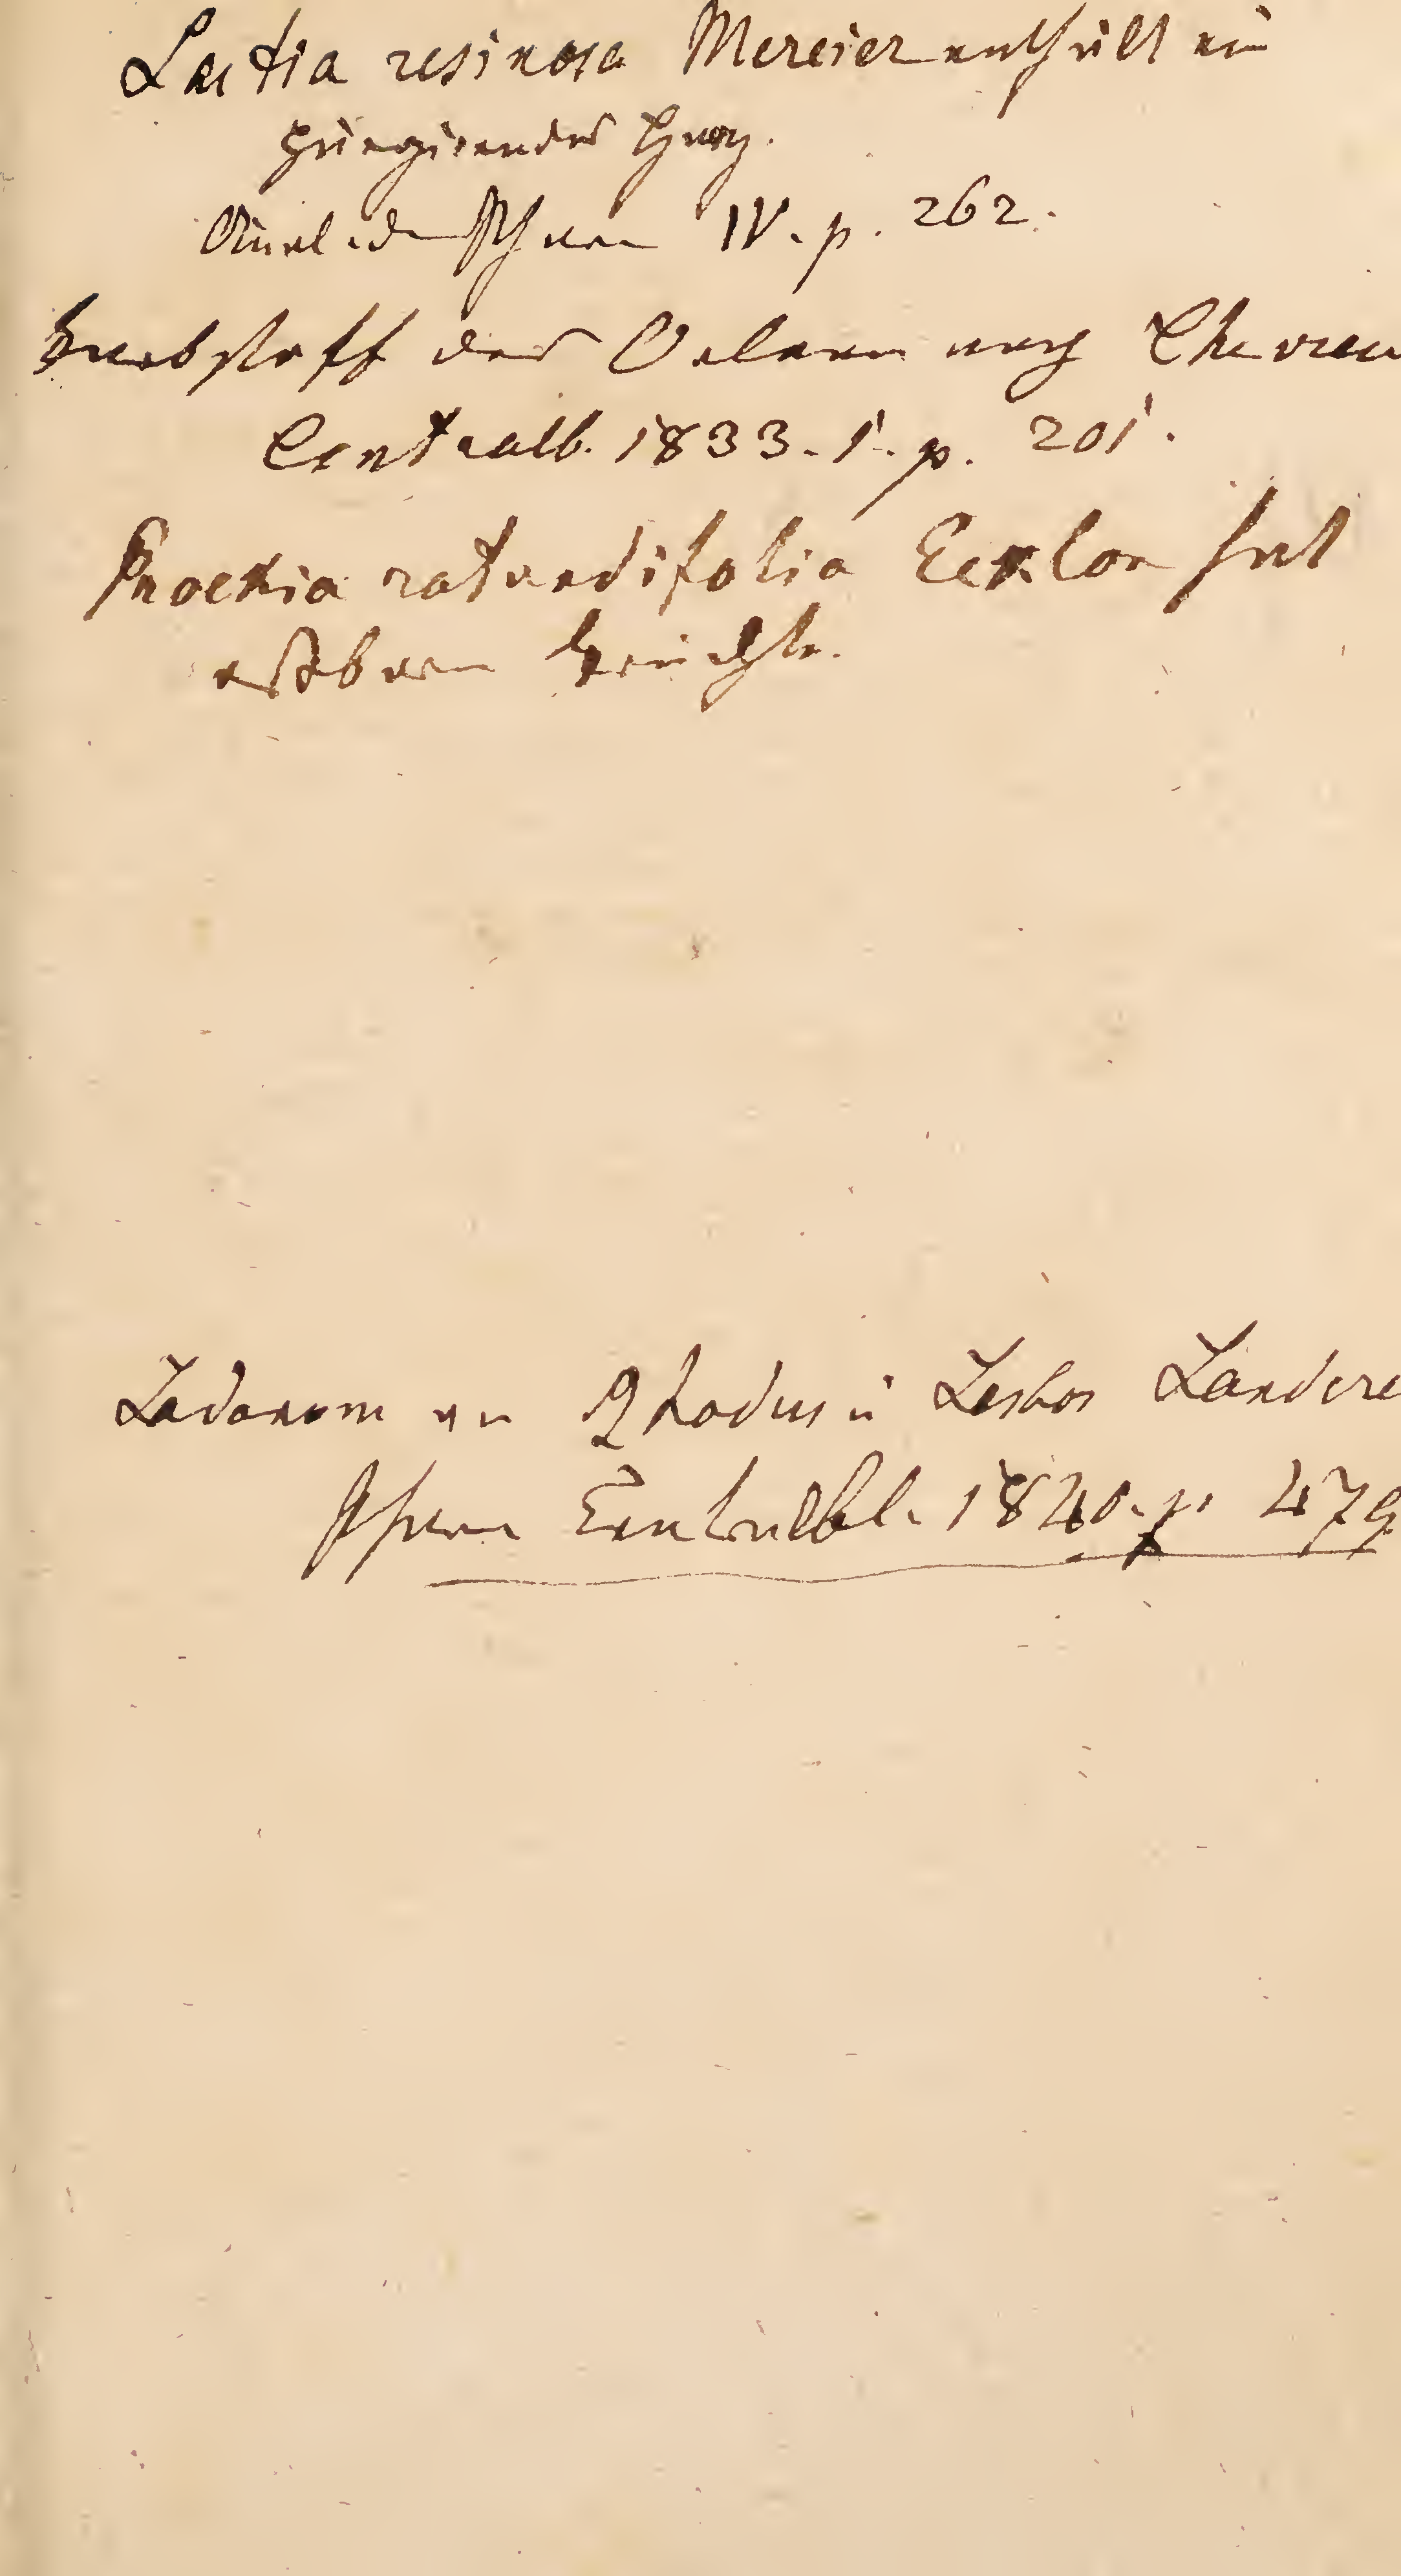 Laetia resinosa Mercier enthält ein
purgirendes Harz.
Annal. d. Pharm IV. p. 262.
Farbstoff des Orlean nach Chevreu
Centralb. 1833. 1. p. 201.
rotundifolia Ecklon hat
eßbare Früchte.
Ladanum an Rhodus u Lesbos Landere
Pharm Centralbl. 1840. p. 479